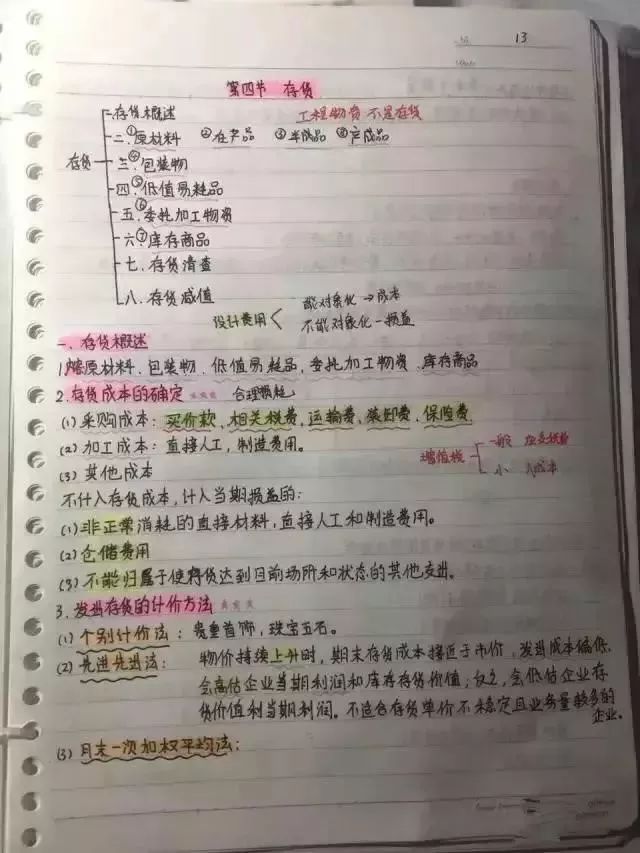 13
第四节 存货
一.存货概述 工程物资 不是存货
二.①原材料 ②在产品 ③半成品 ④产成品
存货
三.④包装物
四.⑤低值易耗品
五.⑥委托加工物资
六.⑦库存商品
七.存货清查
八.存货减值
设计费用< 能对象化→成本
不能对象化—损益
一、存货概述
原材料、包装物、低值易耗品,委托加工物资、库存商品
2.存货成本的确定 *** 合理损耗
(1)采购成本:买价款、相关税费、运输费、装卸费、保险费
(2)加工成本:直接人工,制造费用。
增值税 一般
小 入成本
(3)其他成本
不计入存货成本,计入当期损益的:
(1)非正常消耗的直接材料,直接人工和制造费用。
(2)仓储费用
(3)不能归属于使存货达到目前场所和状态的其他支出。
3.发出存货的计价方法 ***
(1)个别计价法:贵重首饰,珠宝玉石。
(2)先进先出法: 物价持续上升时,期末存货成本接近于市价,发出成本偏低,
会高估企业当期利润和库存存货价值;反之,会低估企业存
货价值和当期利润。不适合存货单价不稳定且业务量较多的
企业。
(3)月末一次加权平均法: